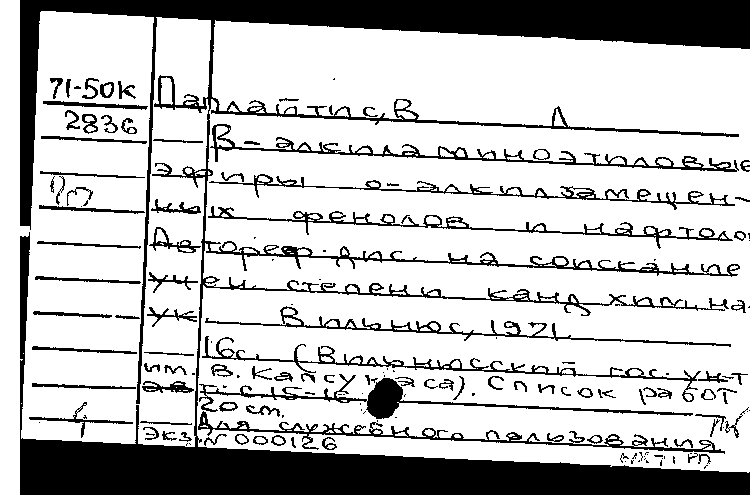 71-50К Паплайтис, В Л
2836 В-алкиламиноэтиловые
эфиры о-алкилзамещен-
ных фенолов и нафтоло
Автореф. дис. на соискание
учен. степени канд хим. на-
ук. Вильнюс, 1971.
16с. (Вильнюсский гос. ун-т
им. В. Капсукаса). Список работ
авт: с 15-16
20 cm.
Для служебного пользования
Экз. N 000126